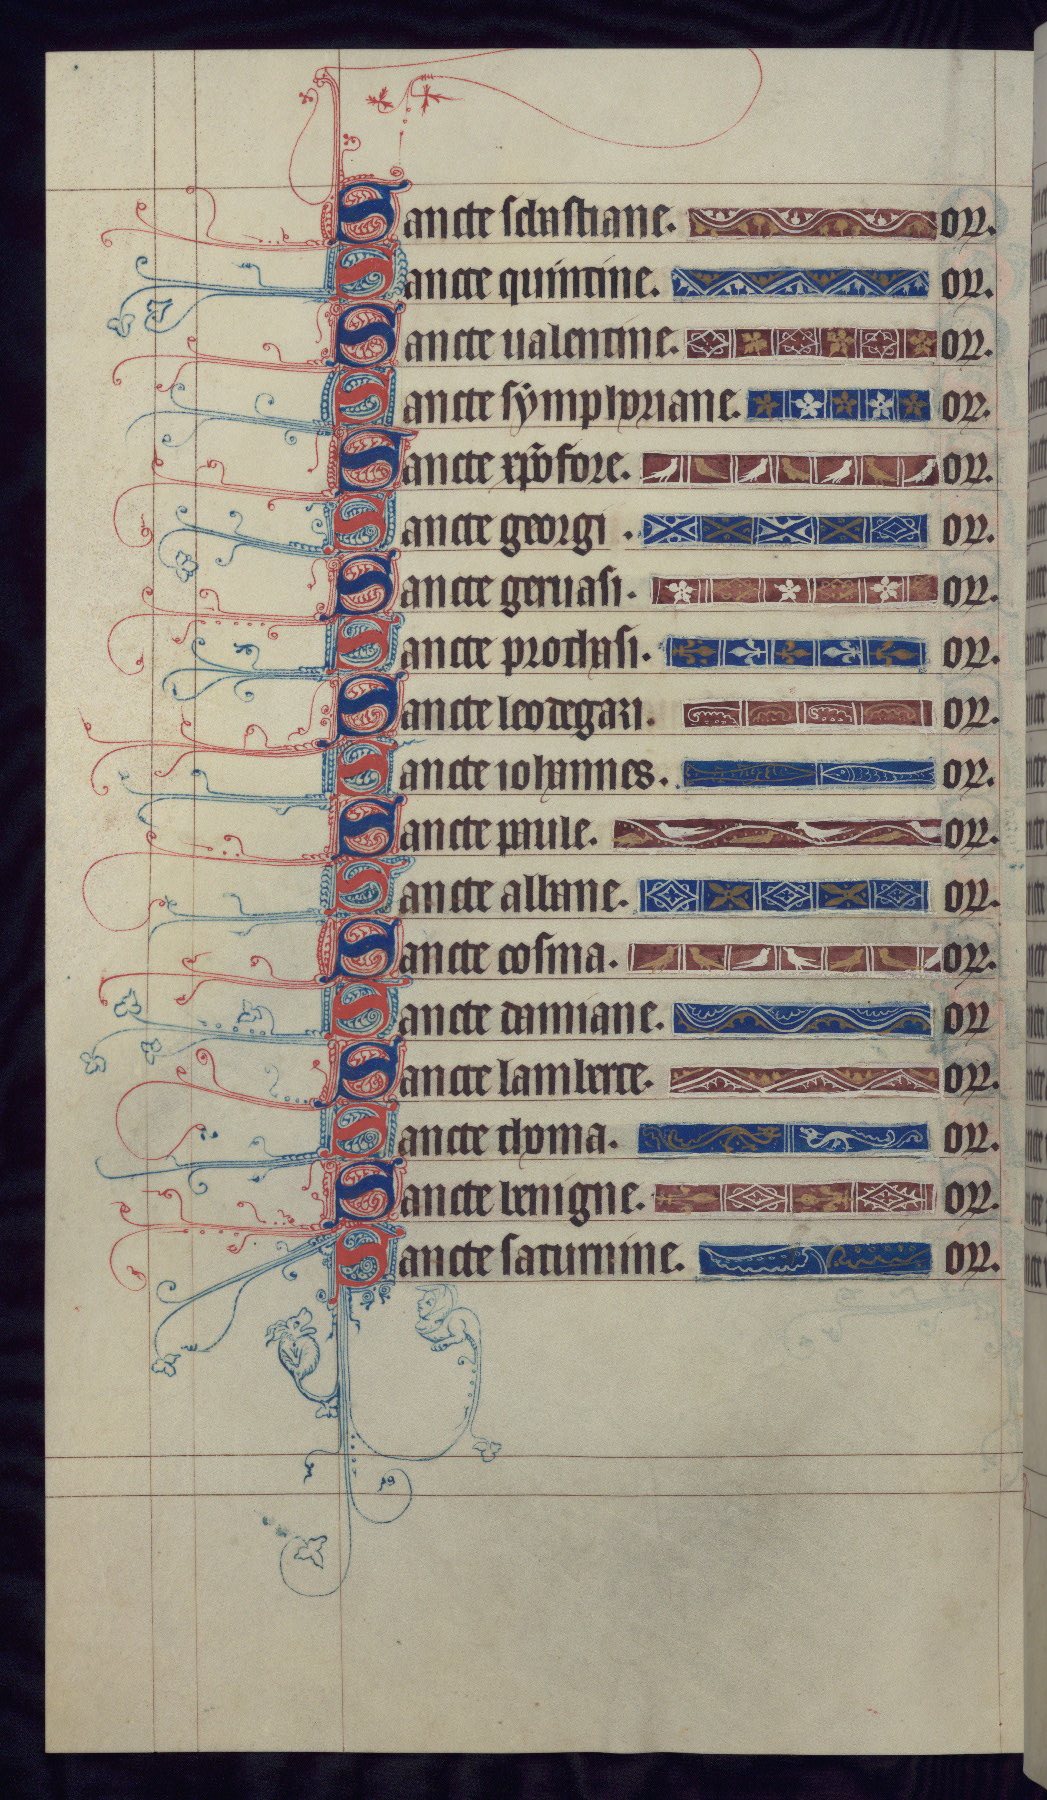 Sancte sebastiane. or̄.
Sancte quintine. or̄.
Sancte ualentine. or̄.
Sancte sẏmphoriane. or̄.
Sancte xp̄ofore. or̄.
Sancte georgi . or̄.
Sancte geruasi. or̄.
Sancte prothasi. or̄.
Sancte leodegari. or̄.
Sancte iohannes. or̄.
Sancte paule. or̄.
Sancte albane. or̄.
Sancte cosma. or̄.
Sancte damiane. or̄
Sancte lamberte. or̄.
Sancte thoma. or̄.
Sancte benigne. or̄.
Sancte saturnine. or̄.